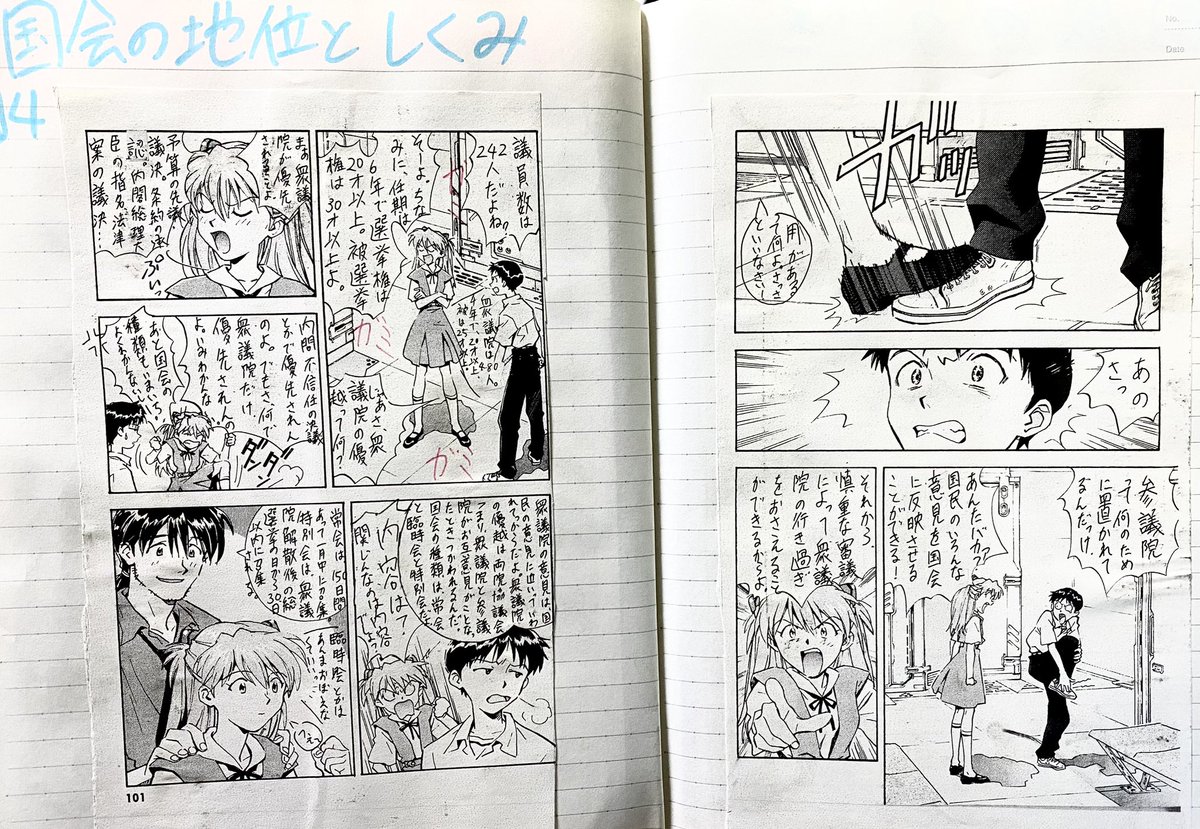 国会の地位としくみ
14
No.
Date
ガッ
用がある
って何よ。さっさ
といなさい
あの
さっ
参議院
って何のため
に置かれて
るんだっけ
あんたバカァ?
国民のいろんな
意見を国会
に反映させる
ことができる!
それから、
慎重な審議
によって衆議
院の行き過ぎ
をおさえること
ができるからよ。
議員数は
242
人だよね?
そーよ。ちな
みに、任期は
6年で選挙権は
20才以上。被選挙
権は30才以上よ。
衆議院は480人。
4年で、20才以上、
被は25才以上。
ガミ
ガミ
じゃあさ、衆
議院の優
越って何?
まぁ衆議
院が優先
されることよ
予算の先議
議決。条約の承
認。内閣総理大
臣の指名。法律
案の議決…
ぷいっ
内閣不信任の決議
とかで優先されん
のよ。でもさ、何で
衆議院だけ
優先されんの
よ。いみわかんな
ダン
ダン
あと国会の
種類もいまいち
よくわかんない
衆議院の意見は、国
民の意見に近いっていわ
れてからだよ。衆議院
の優越は両院協議会
つまり、衆議院と参議
院がお互意見がことな
たときつかわれるんだ。
国会の種類は、常会
と臨時会と特別会だよ
内容は?
関じんなのは内容
でしょっ
常会は、150日間
あって一月中に召集。
特別会は、衆議
院解散後の総
選挙の日から30日
以内に召集
される。
臨時会とかは
あんまかかわんな
くていいって
へぇ〜
101